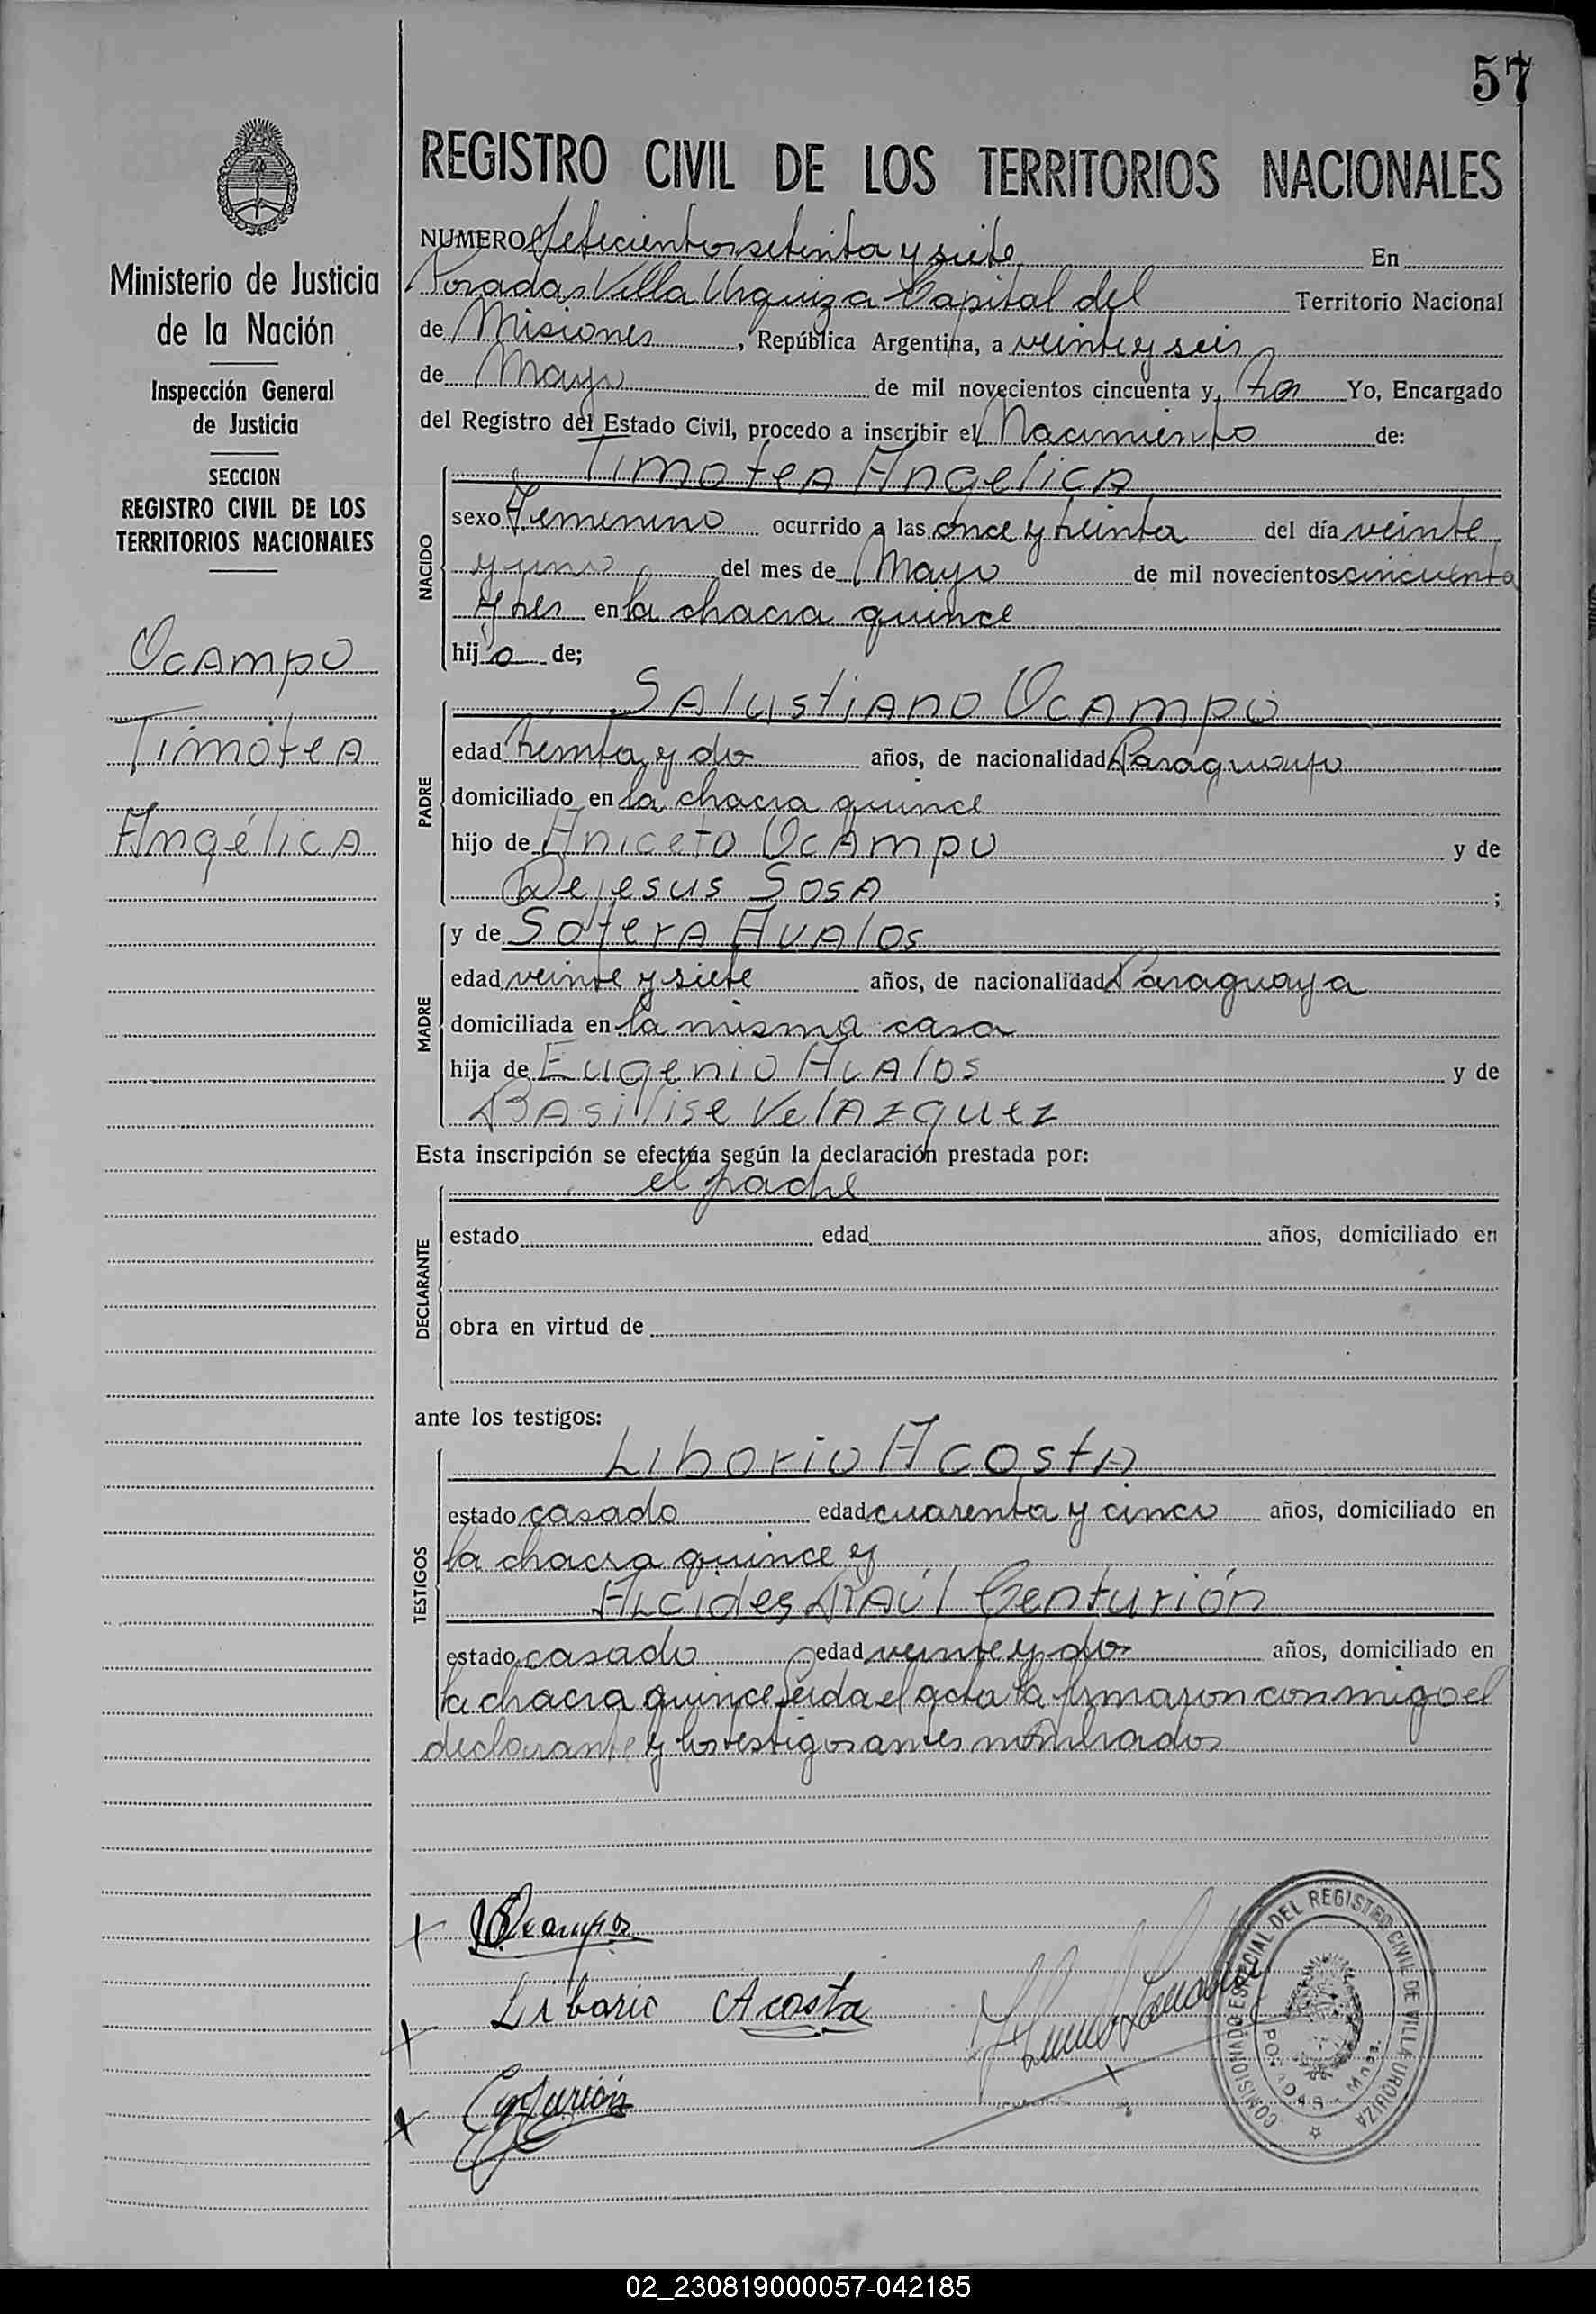 57
REGISTRO CIVIL DE LOS TERRITORIOS NACIONALES
Ministerio de Justicia
de la Nación
Inspección General
de Justicia
SECCION
REGISTRO CIVIL DE LOS
TERRITORIOS NACIONALES
Ocampo
Timotea
Angélica
NUMERO Setecientos setenta y siete En
Posadas Villa Urquiza Capital del Territorio Nacional
de Misiones, República Argentina, a veinte y seis
de Mayo de mil novecientos cincuenta y tres Yo, Encargado
del Registro del Estado Civil, procedo a inscribir el Nacimiento de:
NACIDO
Timotea Angelica
sexo Femenino ocurrido a las once y treinta del día veinte
y uno del mes de Mayo de mil novecientos cincuenta
y tres en la chacra quince
hija de;
PADRE
Salustiano Ocampo
edad treinta y dos años, de nacionalidad Paraguayo
domiciliado en la chacra quince
hijo de Aniceto Ocampo y de
Dejesus Sosa ;
MADRE
y de Sotera Avalos
edad veinte y siete años, de nacionalidad Paraguaya
domiciliada en la misma casa
hija de Eugenio Avalos y de
Basilise Velazquez
Esta inscripción se efectúa según la declaración prestada por:
DECLARANTE
el padre
estado edad años, domiciliado en
obra en virtud de
ante los testigos:
TESTIGOS
Liborio Acosta
estado casado edad cuarenta y cinco años, domiciliado en
la chacra quince y
Alcides Raúl Centurión
estado casado edad veinte y dos años, domiciliado en
la chacra quince Leida el acta la firmaron conmigo el
declarante y los testigos antes nombrados
x SOcampos
x Liborio Acosta
x Centurión
COMISIONADO ESPECIAL DEL REGISTRO CIVIL DE VILLA URQUIZA
POSADAS - Mnes.
02_230819000057-042185